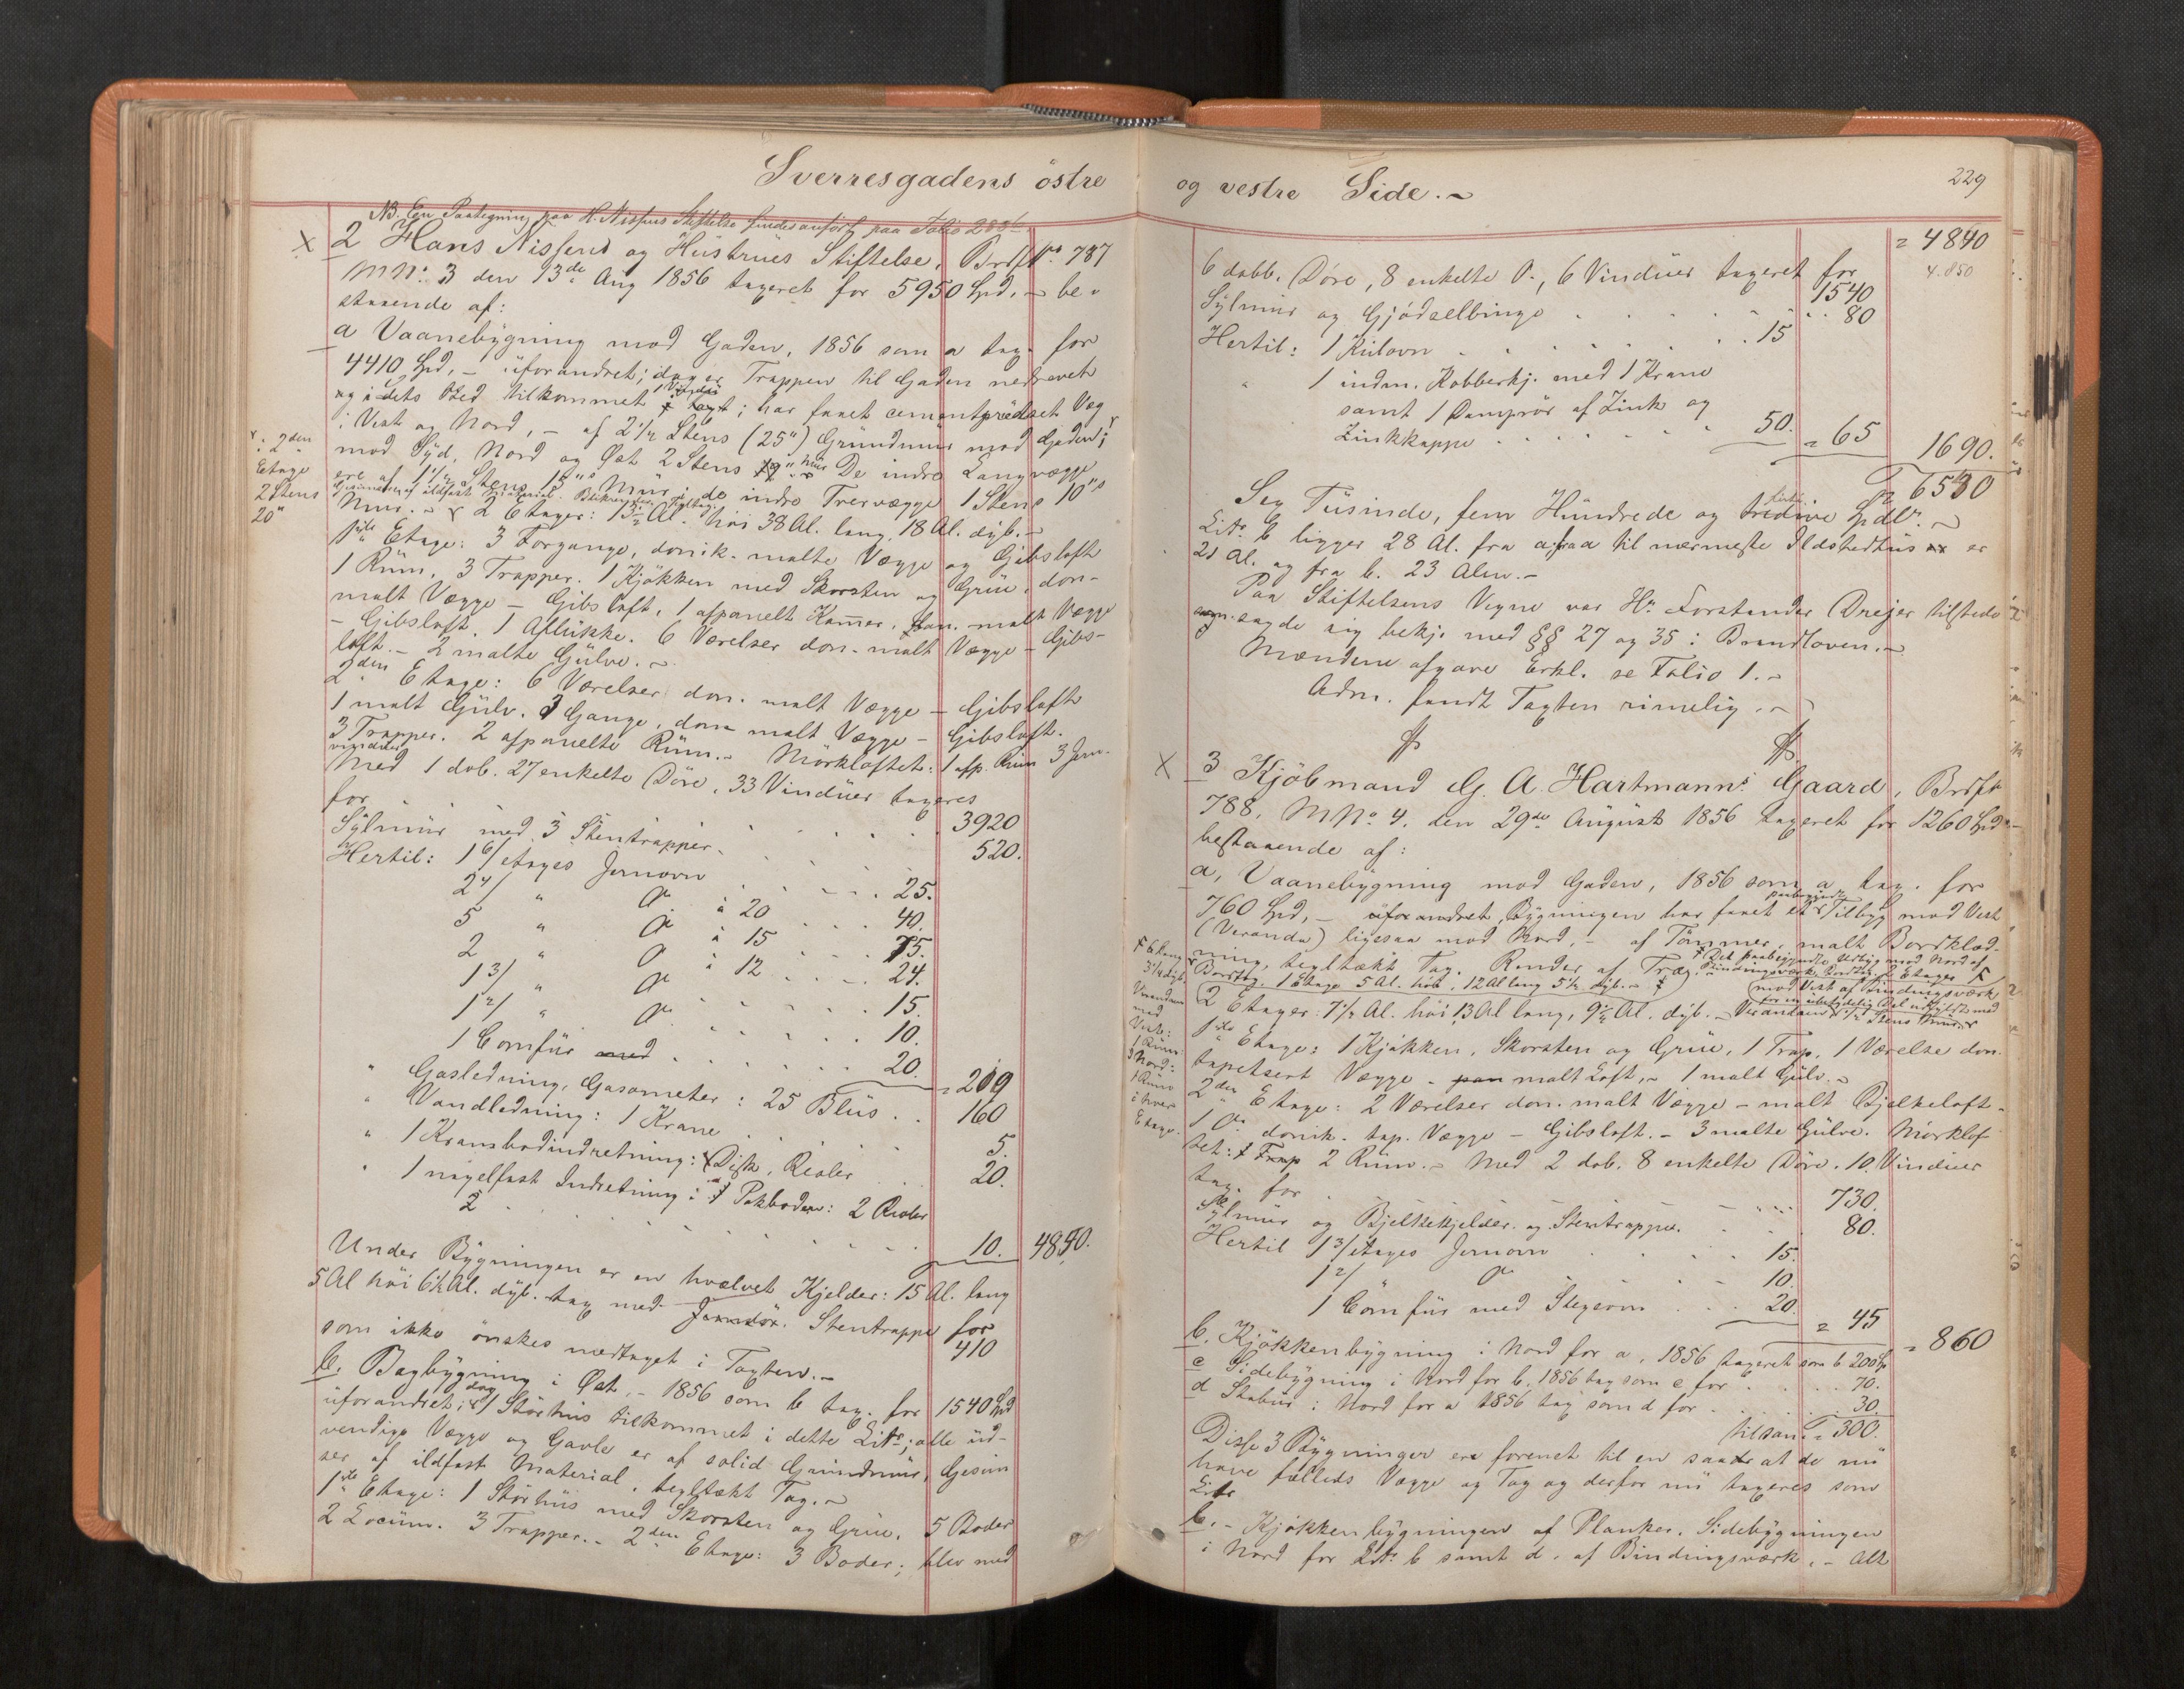 Sverresgadens östre
NB. En Paategning paa H. Nissens Stiftelse findes anført paa Folio 288
2 Hans Nissens og Hustrues Stiftelse, Brdf No. 787
MNo. 3 den 13de Aug 1856 taxeret for 5950 Spd. – be-
staaende af:
a Vaanebygning mod Gaden, 1856 som a tax. for
4410 Spd, – uforandret; dog er Trappen til Gaden nedrevet
og i dets Sted tilkommet 1 Vindu; har faaet cementpudset Væg
i Vest og Nord, – af 2 1/2 Stens (25") Grundmur mod Gaden;
mod Syd, Nord og Øst 2 Stens De indre Langvægge
ere af 1 1/2 Stens 15" Mur, de indre Tvervægge 1 Stens 10"
Gesimsen af ildfast Material.
Mur. – 2 Etager: 13 1/2 Al. høi 38 Al. lang, 18 Al. dyb. –
x. 2den
Etage
2 Stens
20"
1ste Etage: 3 Forgange, donik. malte Vægge og Gibsloft
1 Rum, 3 Trapper. 1 Kjøkken med Skorsten og Grue, don-
malt Vægge – Gibsloft, 1 afpanelt Kammer, pan. malt Vægge
– Gibsloft. 1 Aflukke. 6 Værelser don. malt Vægge – Gibs-
loft. – 2 malte Gulve. –
2den Etage: 6 Værelser don. malt Vægge – Gibsloft
1 malt Gulv. 3 Gange, don. malt Vægge – Gibsloft.
3 Trapper. 2 afpanelte Rum. – Mørkloftet: 1 afp. Rum 3 Jern-
vinduer
Med 1 dob. 27 enkelte Døre, 33 Vinduer taxeres
for . . . 3920
Sylmur med 3 Stentrapper . . . 520.
Hertil: 1 6/ etages Jernovn . . . 25.
2 4/ " Do à 20 . . . 40.
5 " Do à 15 . . . 75.
2 " Do à 12 . . . 24.
1 3/ " Do . . . 15.
1 2/ " Do . . . 10.
1 Comfür . . . 20. = 209
" Gasledning, Gasometer: 25 Blus . 160
" Vandledning: 1 Krane . . . 5.
" 1 Krambodindretning: Disk, Reoler . . 20.
" 1 nagelfast Indretning i Pakboden: 2 Reoler
2 . . . 10. 4840.
Under Bygningen er en hvælvet Kjelder: 15 Al. lang
5 Al høi 6 1/2 Al. dyb. tax med Jerndør. Stentrappe for
410
som ikke önskes medtaget i Taxten. –
b. Bagbygning i Øst, – 1856 som b tax. for 1540 Spd
uforandret; dog 1 Störhus tilkommet i dette Litr; alle ud-
vendige Vægge og Gavle er af solid Grundmur, Gesim
ser af ildfast Material, tegltækt Tag. –
1ste Etage: 1 Störhus med Skorsten og Grue, 5 Boder
2 Locum. 3 Trapper. – 2den Etage: 3 Boder; blev med
og vestre Side. –
229
= 4840
4.850
6 dobb. Døre, 8 enkelte Do., 6 Vinduer taxeret for
1540
Sylmur og Gjødselbinge . . . 80
Hertil: 1 Kulovn . . . 15
" 1 indm. Kobberkj. med 1 Krane
samt 1 Damprör af Zink og
Zinkkappe . . . 50. = 65 1690.
6530
Sex Tusinde, fem Hundrede og tredive Spdlr. –
Litr. b ligger 28 Al. fra a, fra a til nærmeste Ildstedhus er
21 Al. og fra b. 23 Alen. –
Paa Stiftelsens Vegne var Hr. Forstander Dreier tilstede
sagde sig bekj. med §§ 27 og 35 i Brandloven. –
Mændene afgave Erkl. se Folio 1. –
Adm. fandt Taxten rimelig. –
3 Kjöbmand G. A. Hartmanns Gaard, Brdf No
788, MNo. 4. den 29de August 1856 taxeret for 1260 Spd –
bestaaende af:
a, Vaanebygning mod Gaden, 1856 som a tax. for
760 Spd, – uforandret, Bygningen har faaet et paabegyndt Tilbyg mod Vest
(Veranda) ligesaa mod Nord, – af Tömmer, malt Bordklæd-
ning, tegltækt Tag. Render af Træ.
Det paabegyndte Udbyg mod Nord af
Bindingsværk
Bordtag. 1 Etage 5 Al. höi, 12 Al lang 5 1/2 dyb. –
mod Vest af Bindingsværk
2 Etager: 7 1/2 Al. höi 13 Al lang, 9 1/2 Al. dyb. – Verandaen
1ste Etage: 1 Kjøkken, Skorsten og Grue, 1 Trap. 1 Værelse don.
tapetsert Vægge – malt Loft, – 1 malt Gulv. –
2den Etage: 2 Værelser don. malt Vægge – malt Bjelkeloft –
1 Do donik. tap. Vægge – Gibsloft. – 3 malte Gulve. Mörklof-
tet: 2 Rum. – Med 2 dob. 8 enkelte Döre. 10. Vinduer
Verandaen
mod
Vest:
1 Rum
Nord:
1 Rum
i hver
Etage.
tax. for . . . 730.
Sylmur og Bjelkekjelder og Stentrappe. . . 80.
Hertil 1 3/ etages Jernovn . . . 15.
1 2/ " Do . . . 10.
1 Comfür med Stegeovn . . . 20. = 45
= 860
b. Kjøkkenbygning i Nord for a, 1856 taxeret som b 200 Sp
c Sidebygning i Nord for b. 1856 tax som c for . . . 70.
d Stabur i Nord for a 1856 tax som d for . . . 30.
tilsam. = 300.
Disse 3 Bygninger ere forenet til en saa at de nu
have fælleds Vægge og Tag og derfor nu taxeres som
Litr
b. – Kjøkkenbygningen af Planker. Sidebygningen
i Nord for Litr. b samt d. af Bindingsværk. – Alt